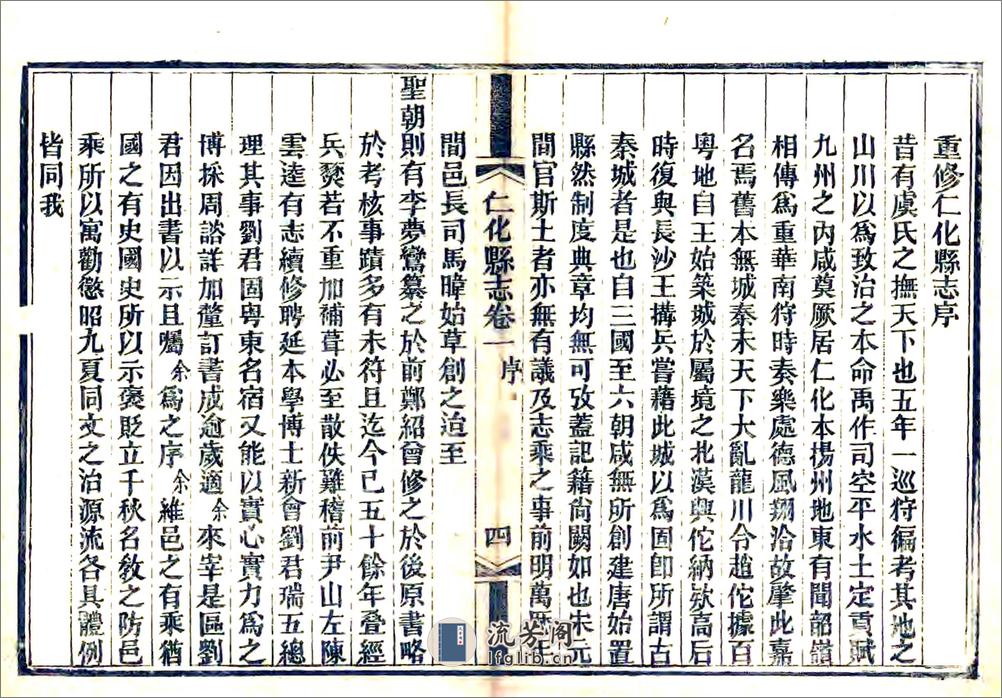 重修仁化縣志序
昔有虞氏之撫天下也五年一巡狩徧考其地之
山川以爲致治之本命禹作司空平水土定貢賦
九州之內咸奠厥居仁化本揚州地東有聞韶嶺
相傳爲重華南狩時奏樂處德風翔洽故肇此嘉
名焉舊本無城秦末天下大亂龍川令趙佗據百
粵地自王始築城於屬境之北漢興佗納欵高后
時復與長沙王搆兵嘗藉此城以爲固卽所謂古
秦城者是也自三國至六朝咸無所創建唐始置
縣然制度典章均無可攷蓋記籍尙闕如也宋元
間官斯土者亦無有議及志乘之事前明萬歷年
仁化縣志卷一 序 四
間邑長司馬暐始草創之迨至
聖朝則有李夢鸞纂之於前鄭紹曾修之於後原書略
於考核事蹟多有未符且迄今已五十餘年叠經
兵燹若不重加補葺必至散佚難稽前尹山左陳
雲逵有志續修聘延本學博士新會劉君瑞五總
理其事劉君固粵東名宿又能以實心實力爲之
博採周諮詳加釐訂書成逾歲適余來宰是區劉
君因出書以示且囑余爲之序余維邑之有乘猶
國之有史國史所以示褒貶立千秋名敎之防邑
乘所以寓勸懲昭九夏同文之治源流各具體例
皆同我
流芳阁
lfglib.cn